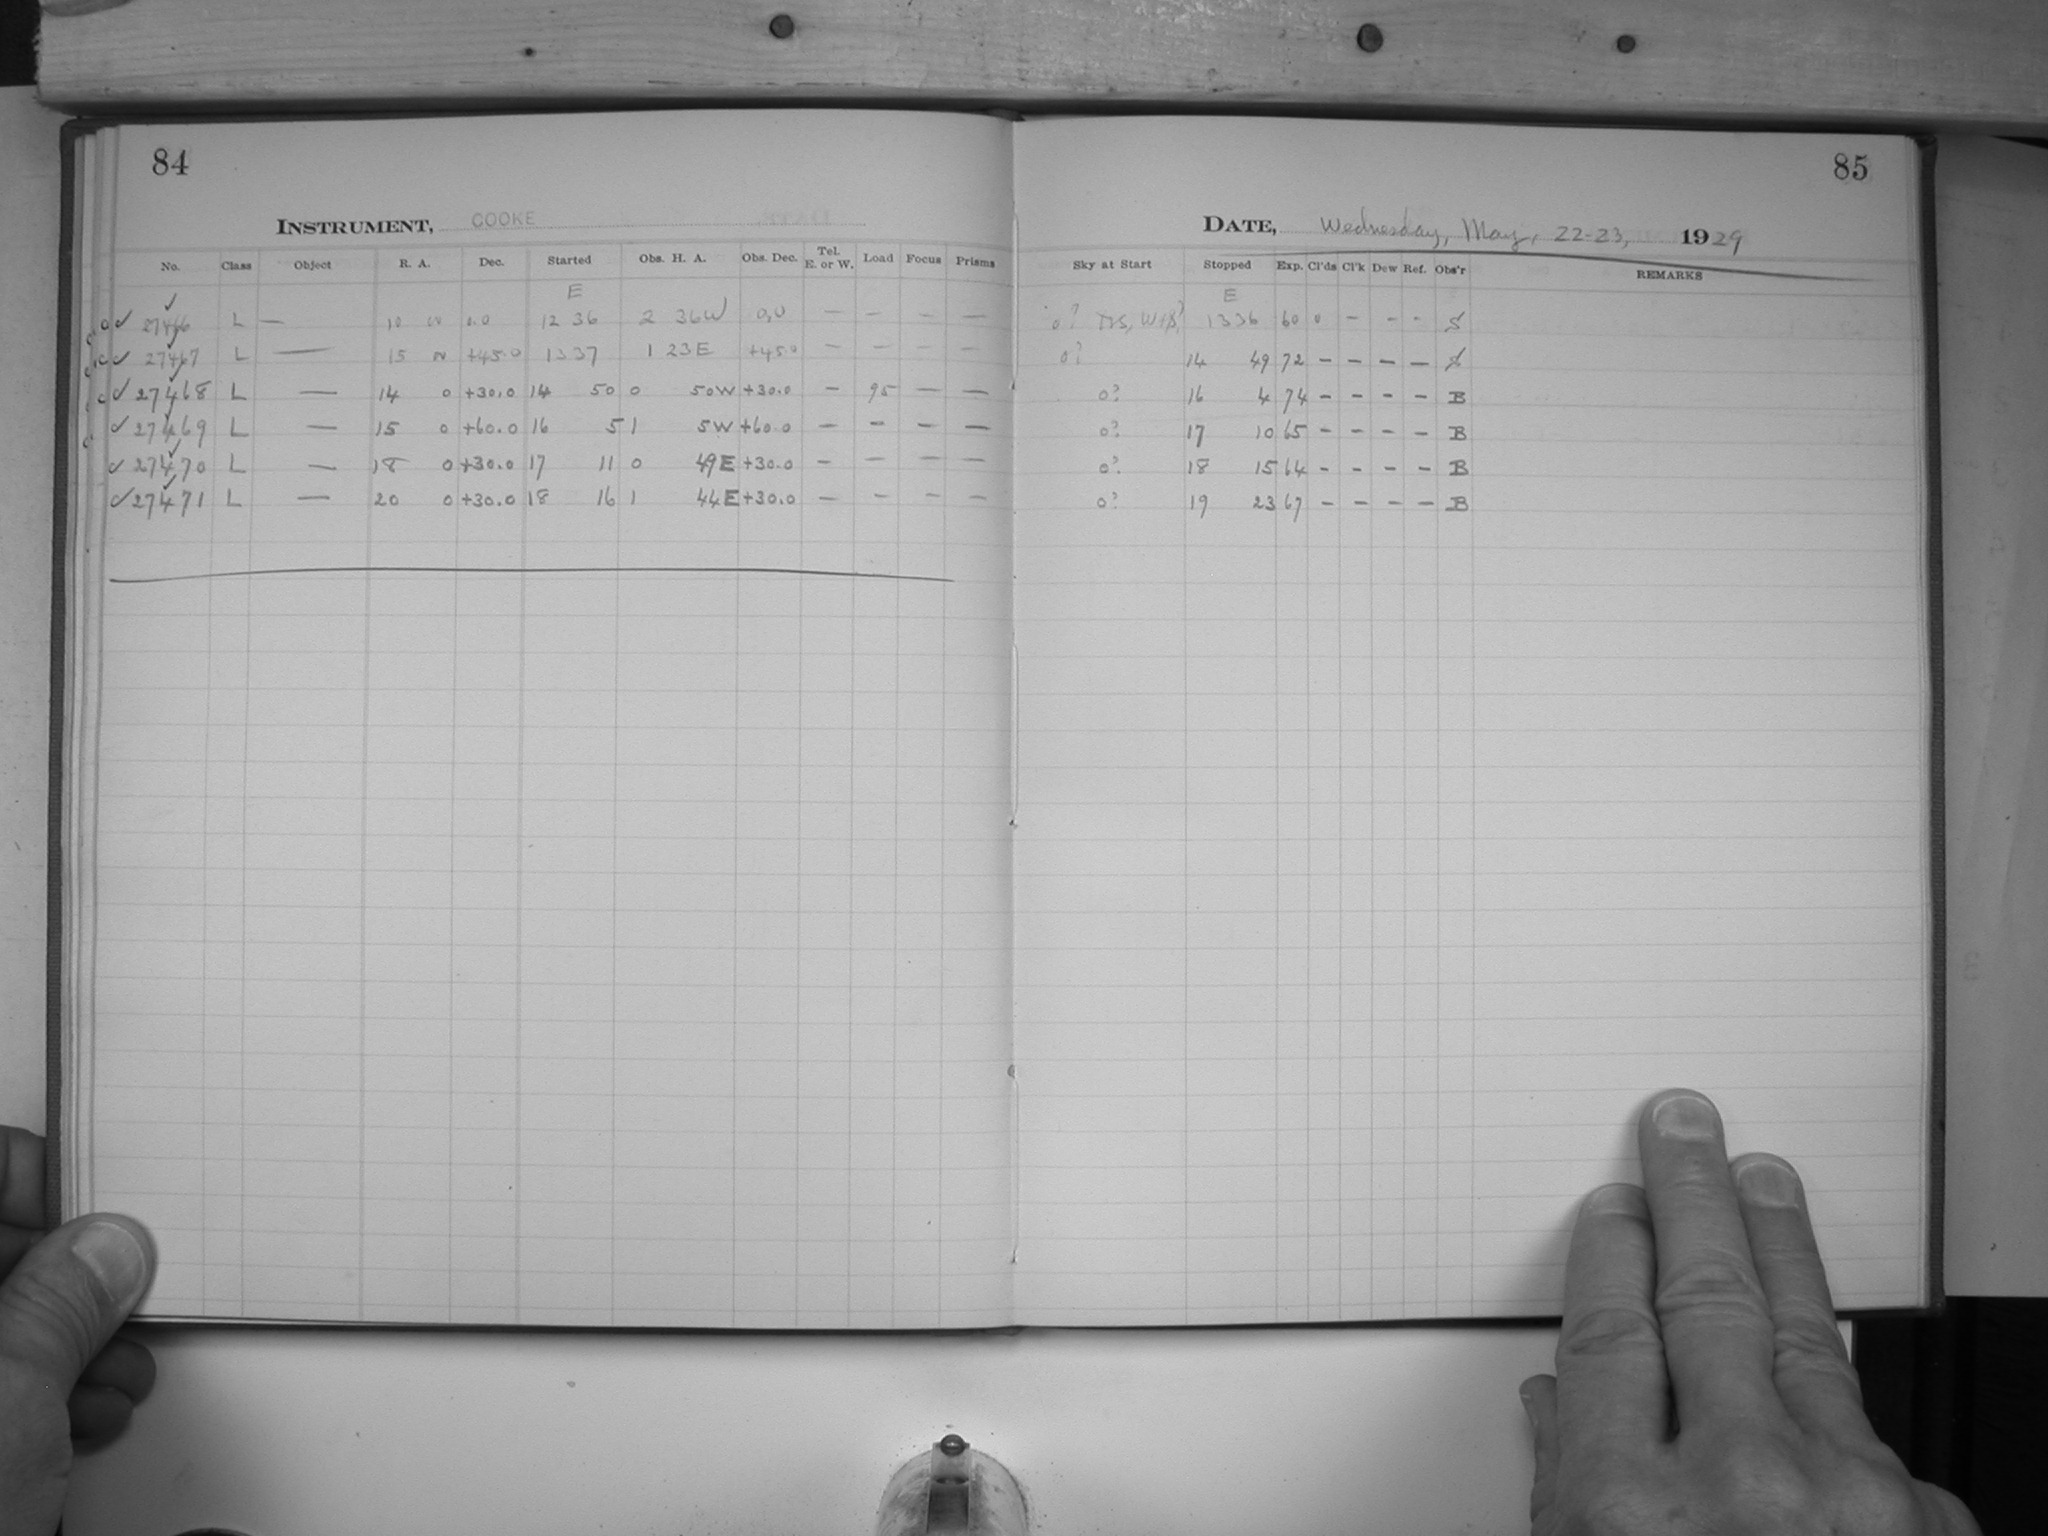 84
INSTRUMENT, COOKE
No. Class Object R. A. Dec. Started Obs. H. A. Obs. Dec. Tel. E. or W. Load Focus Prisms
E
27466 L — 10 0.0 12 36 2 36W 0.0 — — — —
27467 L — 15 +45.0 13 37 1 23E +45.0 — — — —
27468 L — 14 0 +30.0 14 50 0 50W +30.0 — 95 — —
27469 L — 15 0 +60.0 16 5 1 5W +60.0 — — — —
27470 L — 18 0 +30.0 17 11 0 49E +30.0 — — — —
27471 L — 20 0 +30.0 18 16 1 44E +30.0 — — — —
85
DATE, Wednesday, May, 22-23, 1929
Sky at Start Stopped Exp. Cl'ds Cl'k Dew Ref. Obs'r REMARKS
E
0? 13 36 60 0 – – – S
0? 14 49 72 – – – – S
0? 16 4 74 – – – – B
0? 17 10 65 – – – – B
0? 18 15 64 – – – – B
0? 19 23 67 – – – – B